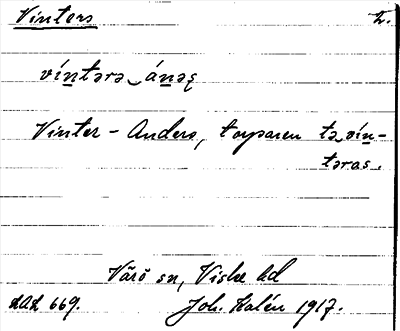 Vinters
tr.
víṉtərə‿áṉəş
Vinter-Anders, torparen tə víṉ-
təras.
Värö sn, Viske hd
LAL 669.
Joh. Kalén 1917.